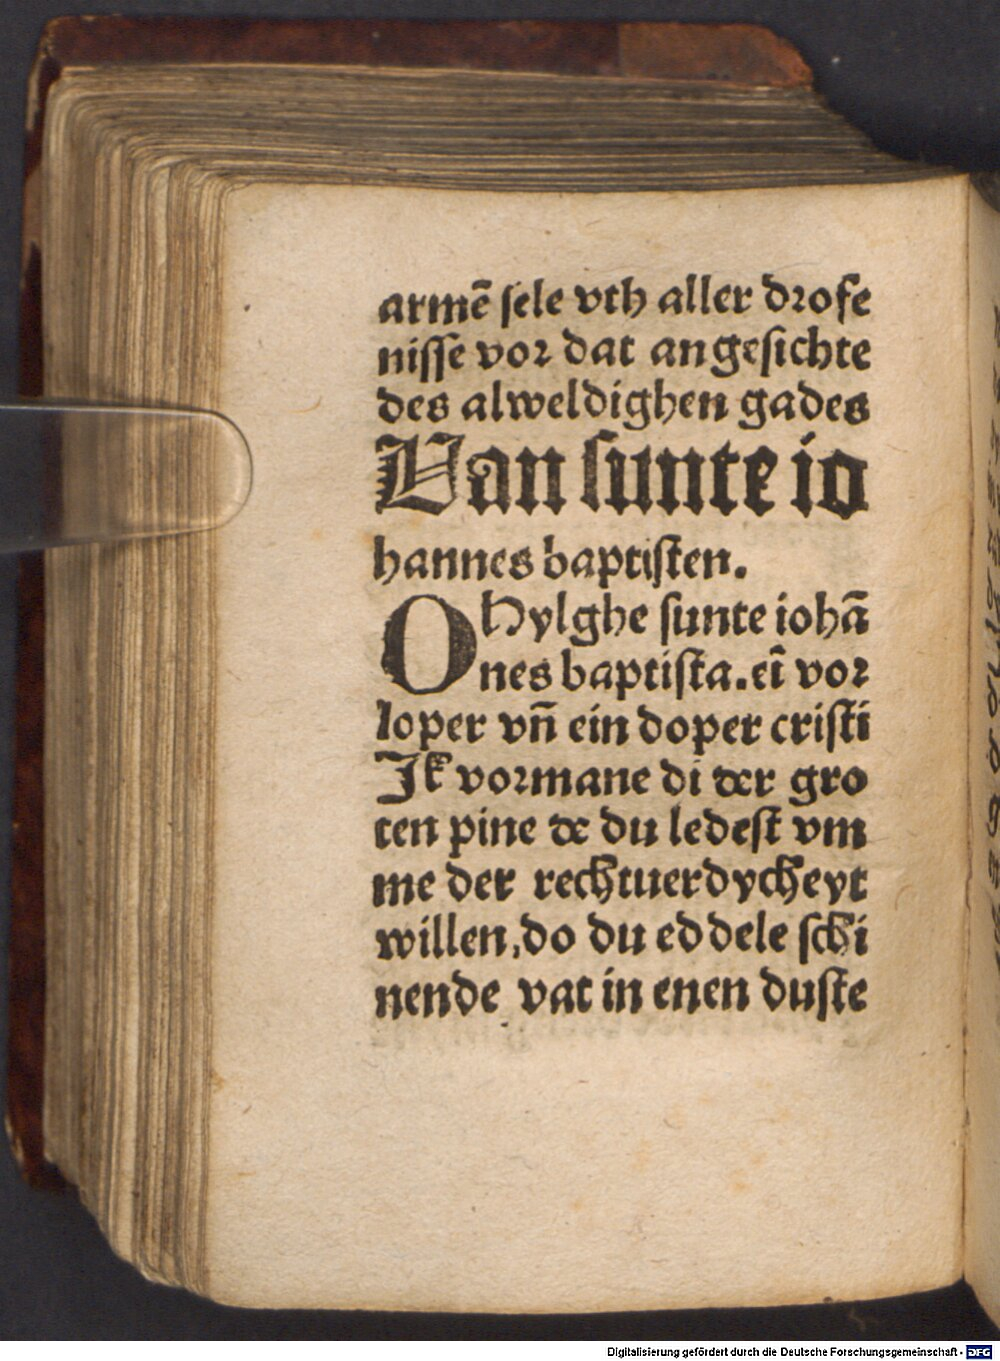 armē ſele vth aller droſe
niſſe vor dat angeſichte
des alweldighen gades
Van ſunte io
hannes baptiſten.
O Hylghe ſunte iohā
nes baptiſta. eī vor
loper vn̄ ein doper criſti
Jk vormane di der gro
ten pine de du ledeſt vm
me der rechtuerdycheyt
willen, do du eddele ſchi
nende vat in enen duſte
Digitalisierung gefördert durch die Deutsche Forschungsgemeinschaft - DFG